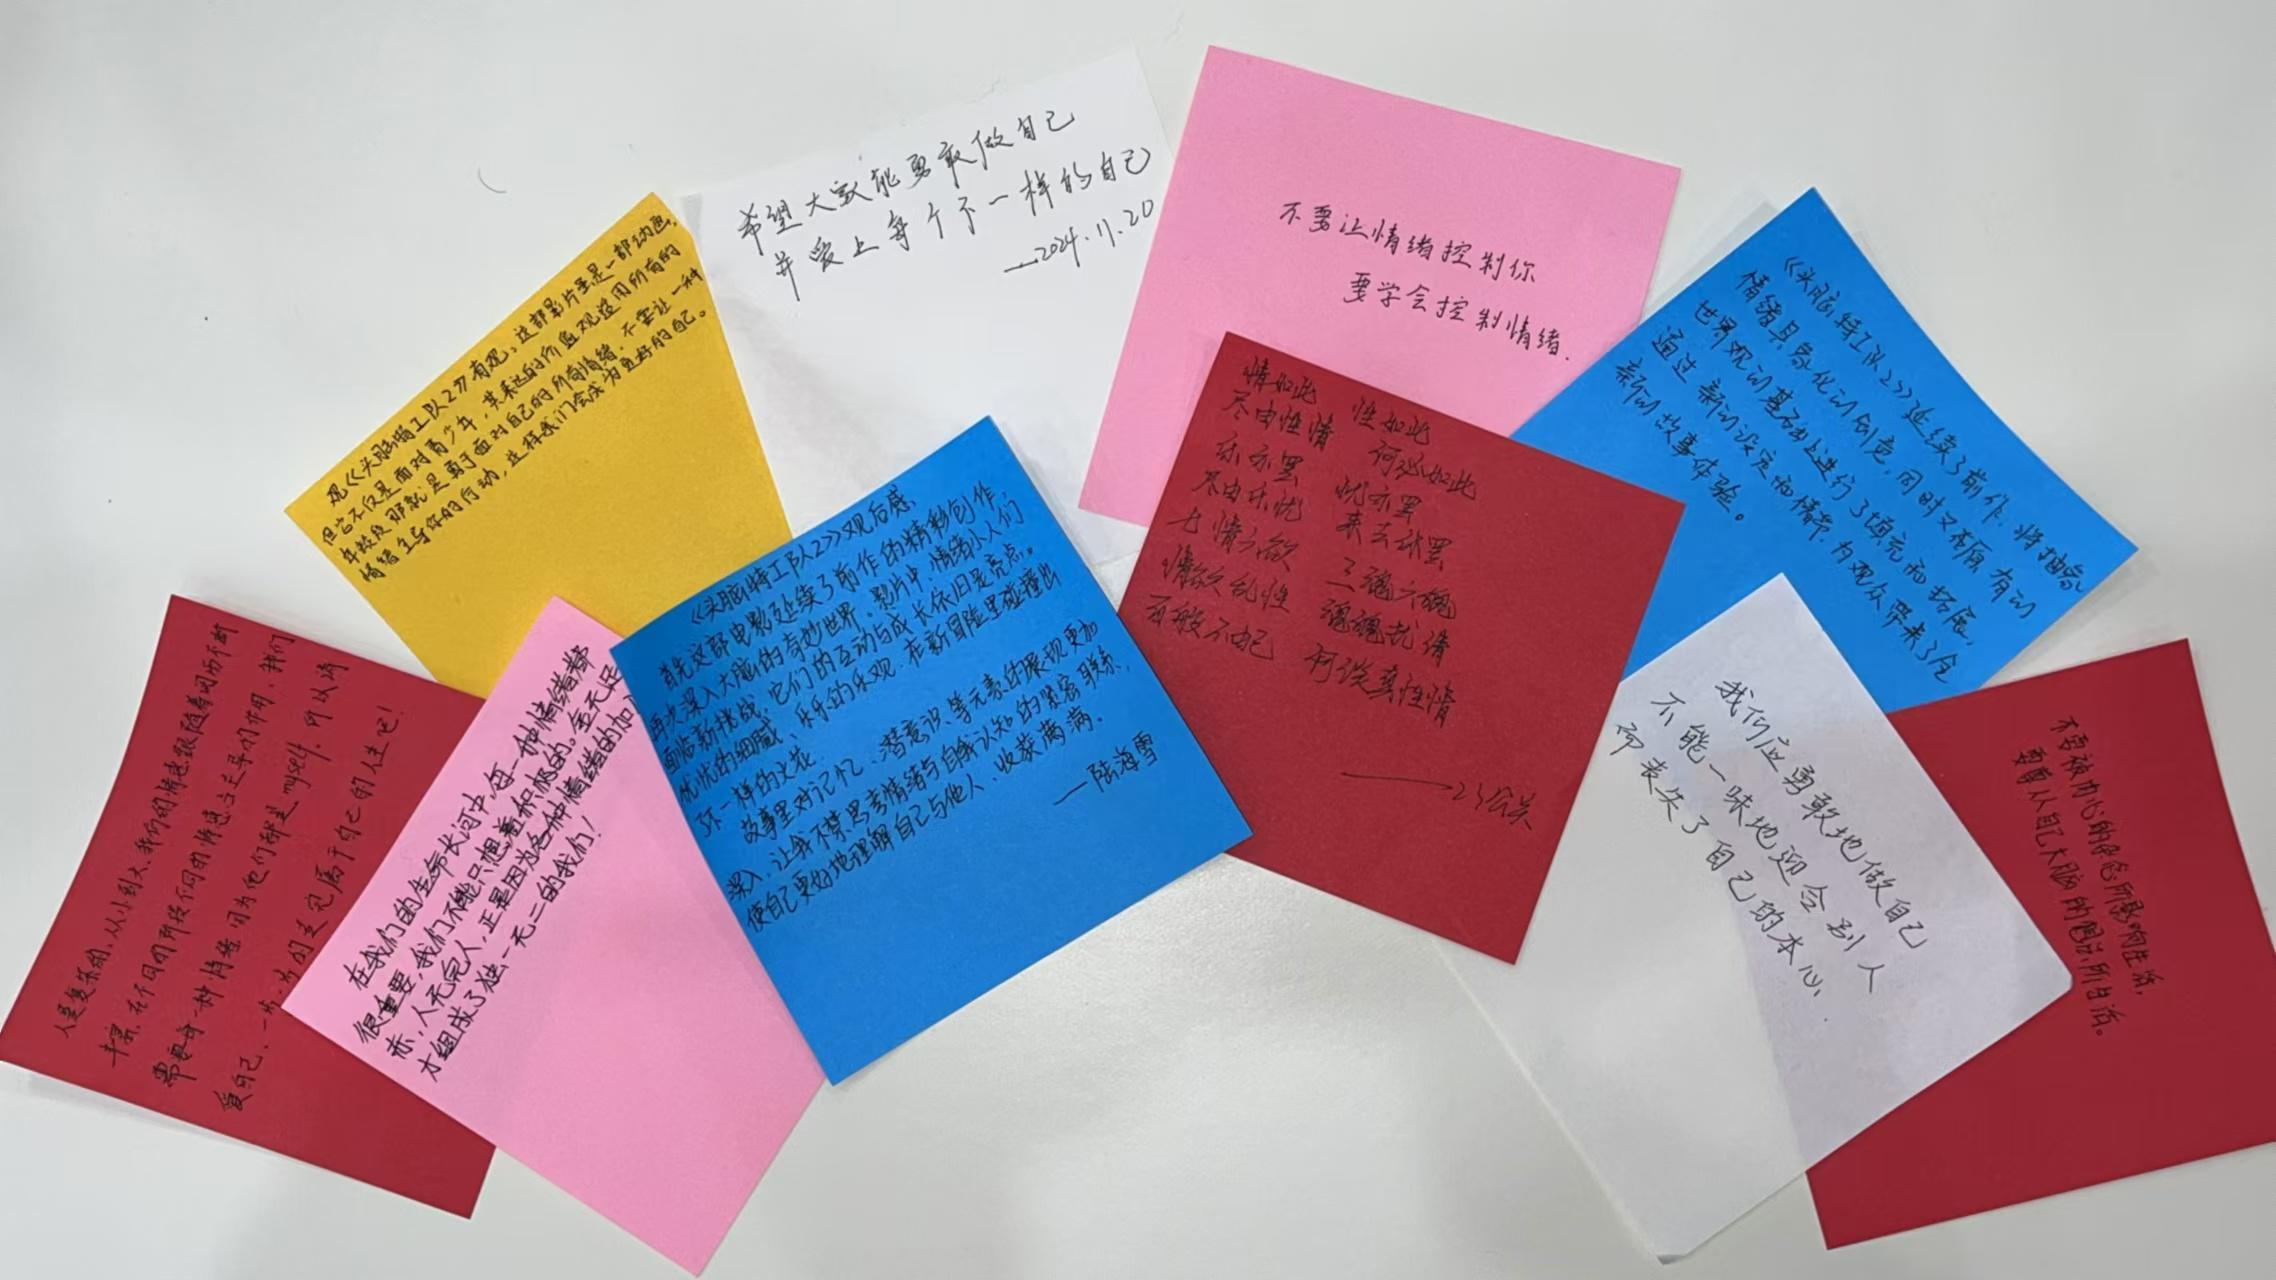 希望大家能勇敢做自己
并爱上每个不一样的自己
—2024.11.20
不要让情绪控制你
要学会控制情绪.
观《《头脑特工队2》》有观:这部影片虽是一部动画,
但它不仅是面对青少年,其表达的价值观适用所有的
年龄段那就是勇于面对自己的所有情绪,不要让一种
情绪主导你的行动,这样我们会成为更好的自己。
《头脑特工队2》》延续了前作,将抽象
情绪具象化的创意,同时又在原有的
世界观的基础上进行了填充和拓展,
通过新的设定和情节为观众带来了全
新的故事体验。
《头脑特工队2》》观后感
首先这部电影延续了前作的精彩创作
再次深入大脑的奇妙世界。影片中,情绪小人们
面临新挑战,它们的互动与成长依旧是亮点。
忧忧的细腻、乐乐的乐观,在新冒险里碰撞出
了不一样的火花
故事里对记忆、潜意识、等元素的展现更加
深入,让我不禁思考情绪与自我认知的紧密联系,
使自己更好地理解自己与他人,收获满满.
—陆海雪
情如此 性如此
尽由性情 何必如此
乐亦罢 忧亦罢
尽由乐忧 来去亦罢
七情六欲 三魂六魄
情欲乱性 魂魄扰情
有般不妃 何谈真性情
人是复杂的,从小到大,我们的情绪跟随着
丰富.在不同阶段不同的情绪占主导的作用,我们
需要每一种情绪,因为他们都是myself.所以请
爱自己,一步一步的走完属于自己的人生吧!
在我们的生命长河中,每一种情绪都
很重要,我们不能只想着积极的。金无足
赤,人无完人,正是因为各种情绪的加入
才组成了独一无二的我们!
我们应勇敢地做自己
不能一味地迎合别人
而丧失了自己的本心.
不要被内心的杂念所影响生活,
要自从自己大脑的意识所生活。